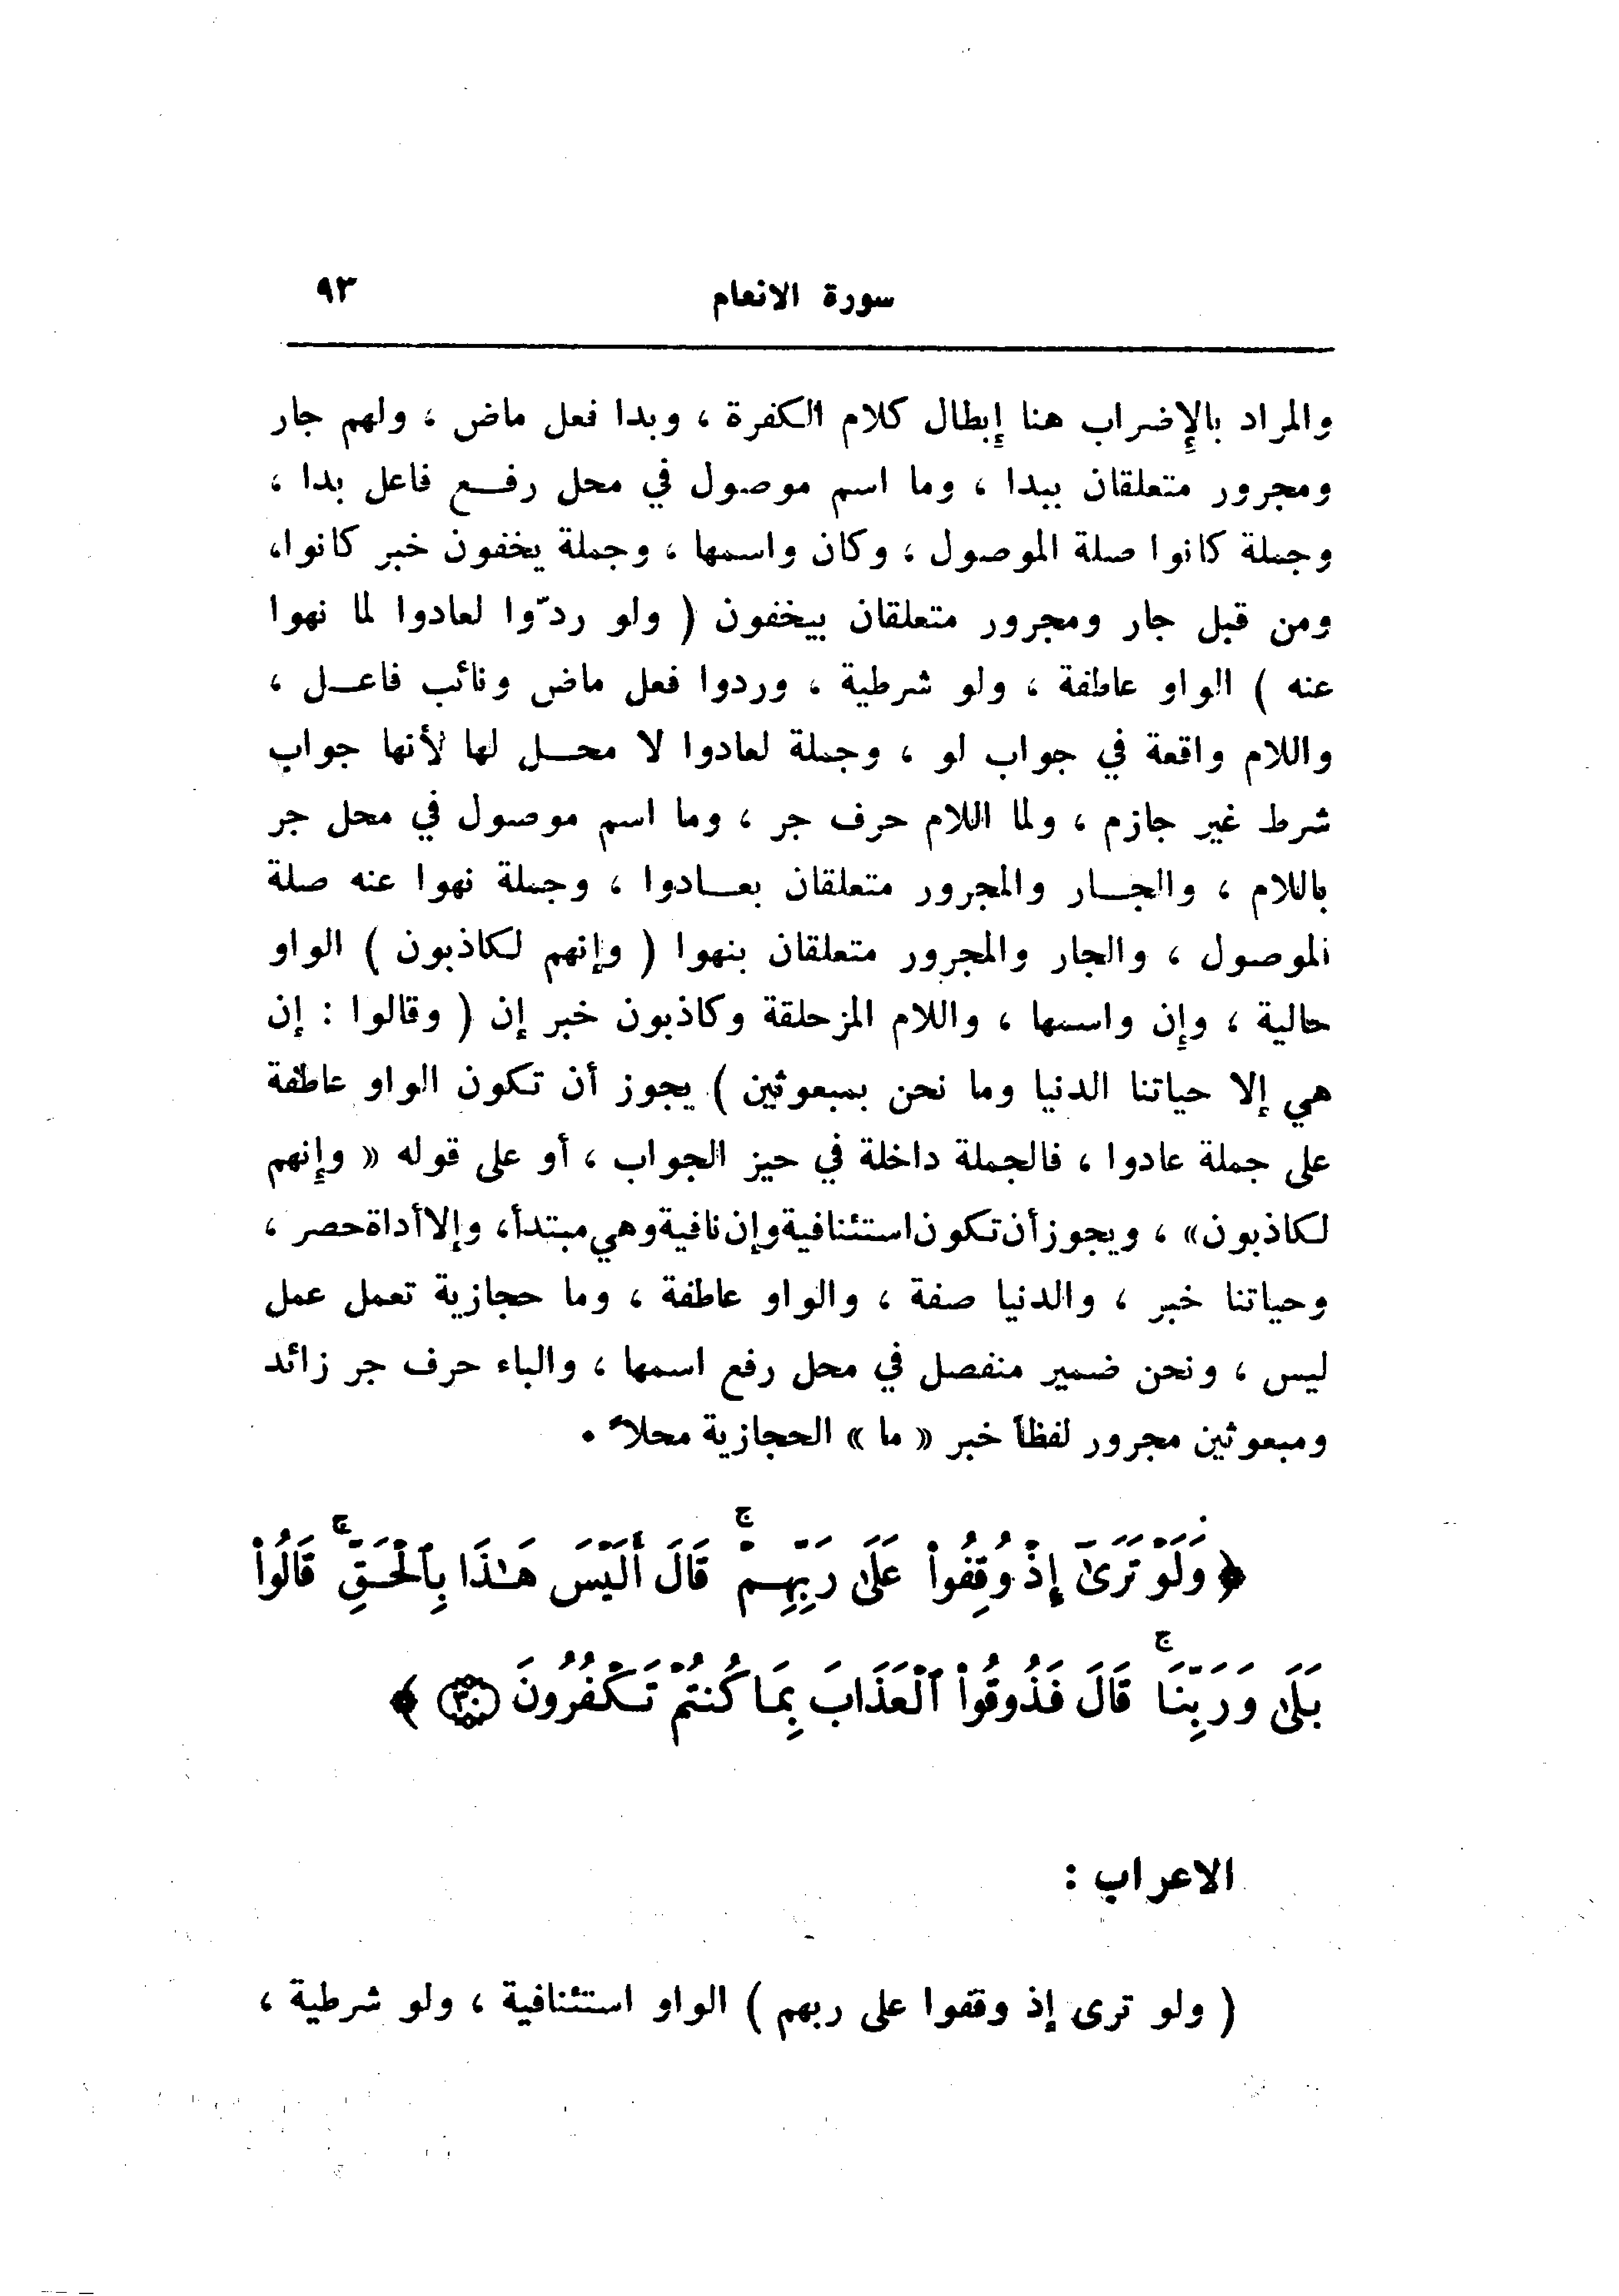 سورة الانعام ٩٣
والمراد بالإضراب هنا إبطال كلام الكفرة ، وبدا فعل ماض ، ولهم جار
ومجرور متعلقان ببدا ، وما اسم موصول في محل رفع فاعل بدا ،
وجملة كانوا صلة الموصول ، وكان واسمها ، وجملة يخفون خبر كانوا،
ومن قبل جار ومجرور متعلقان بيخفون ( ولو ردّوا لعادوا لما نهوا
عنه ) الواو عاطفة ، ولو شرطية ، وردوا فعل ماض ونائب فاعل ،
واللام واقعة في جواب لو ، وجملة لعادوا لا محل لها لأنها جواب
شرط غير جازم ، ولما اللام حرف جر ، وما اسم موصول في محل جر
باللام ، والجار والمجرور متعلقان بعادوا ، وجملة نهوا عنه صلة
الموصول ، والجار والمجرور متعلقان بنهوا ( وإنهم لكاذبون ) الواو
حالية ، وإن واسمها ، واللام المزحلقة وكاذبون خبر إن ( وقالوا : إن
هي إلا حياتنا الدنيا وما نحن بمبعوثين ) يجوز أن تكون الواو عاطفة
على جملة عادوا ، فالجملة داخلة في حيز الجواب ، أو على قوله « وإنهم
لكاذبون» ، ويجوز أن تكون استئنافية وإن نافية وهي مبتدأ، وإلا أداة حصر ،
وحياتنا خبر ، والدنيا صفة ، والواو عاطفة ، وما حجازية تعمل عمل
ليس ، ونحن ضمير منفصل في محل رفع اسمها ، والباء حرف جر زائد
ومبعوثين مجرور لفظاً خبر « ما » الحجازية محلاً .
﴿ وَلَوْ تَرَىٰٓ إِذْ وُقِفُوا۟ عَلَىٰ رَبِّهِمْ ۚ قَالَ أَلَيْسَ هَٰذَا بِٱلْحَقِّ ۚ قَالُوا۟
بَلَىٰ وَرَبِّنَا ۚ قَالَ فَذُوقُوا۟ ٱلْعَذَابَ بِمَا كُنتُمْ تَكْفُرُونَ ٣٠ ﴾
الاعراب :
( ولو ترى إذ وقفوا على ربهم ) الواو استئنافية ، ولو شرطية ،